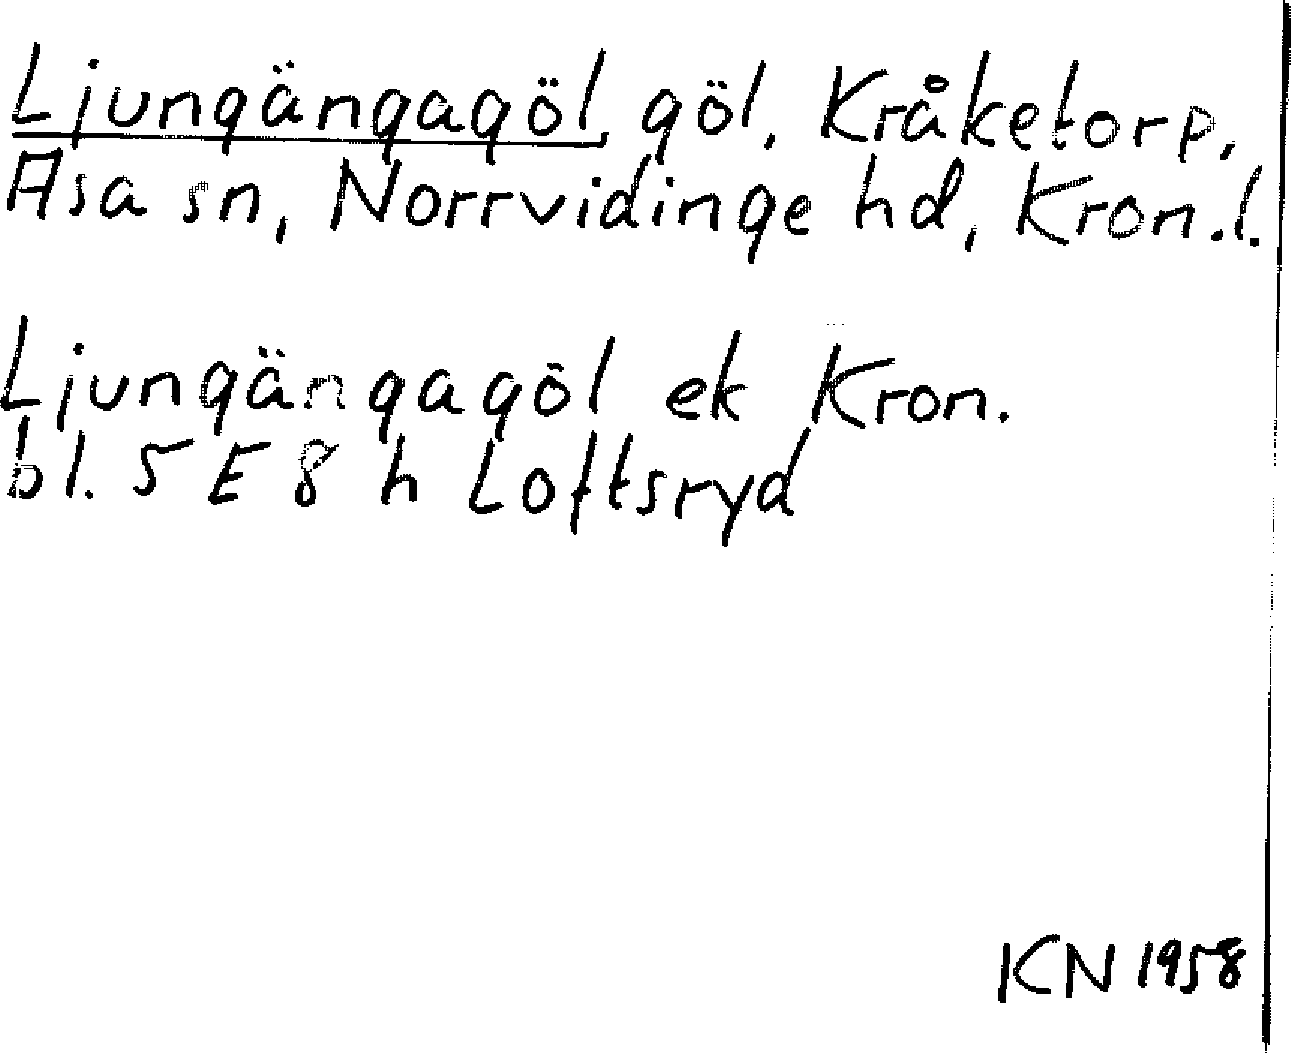 Ljungängagöl, göl, Kråketorp,
Asa sn, Norrvidinge hd, Kron.l.
Ljungängagöl ek Kron.
bl. 5 E 8 h Loftsryd
KN 1958